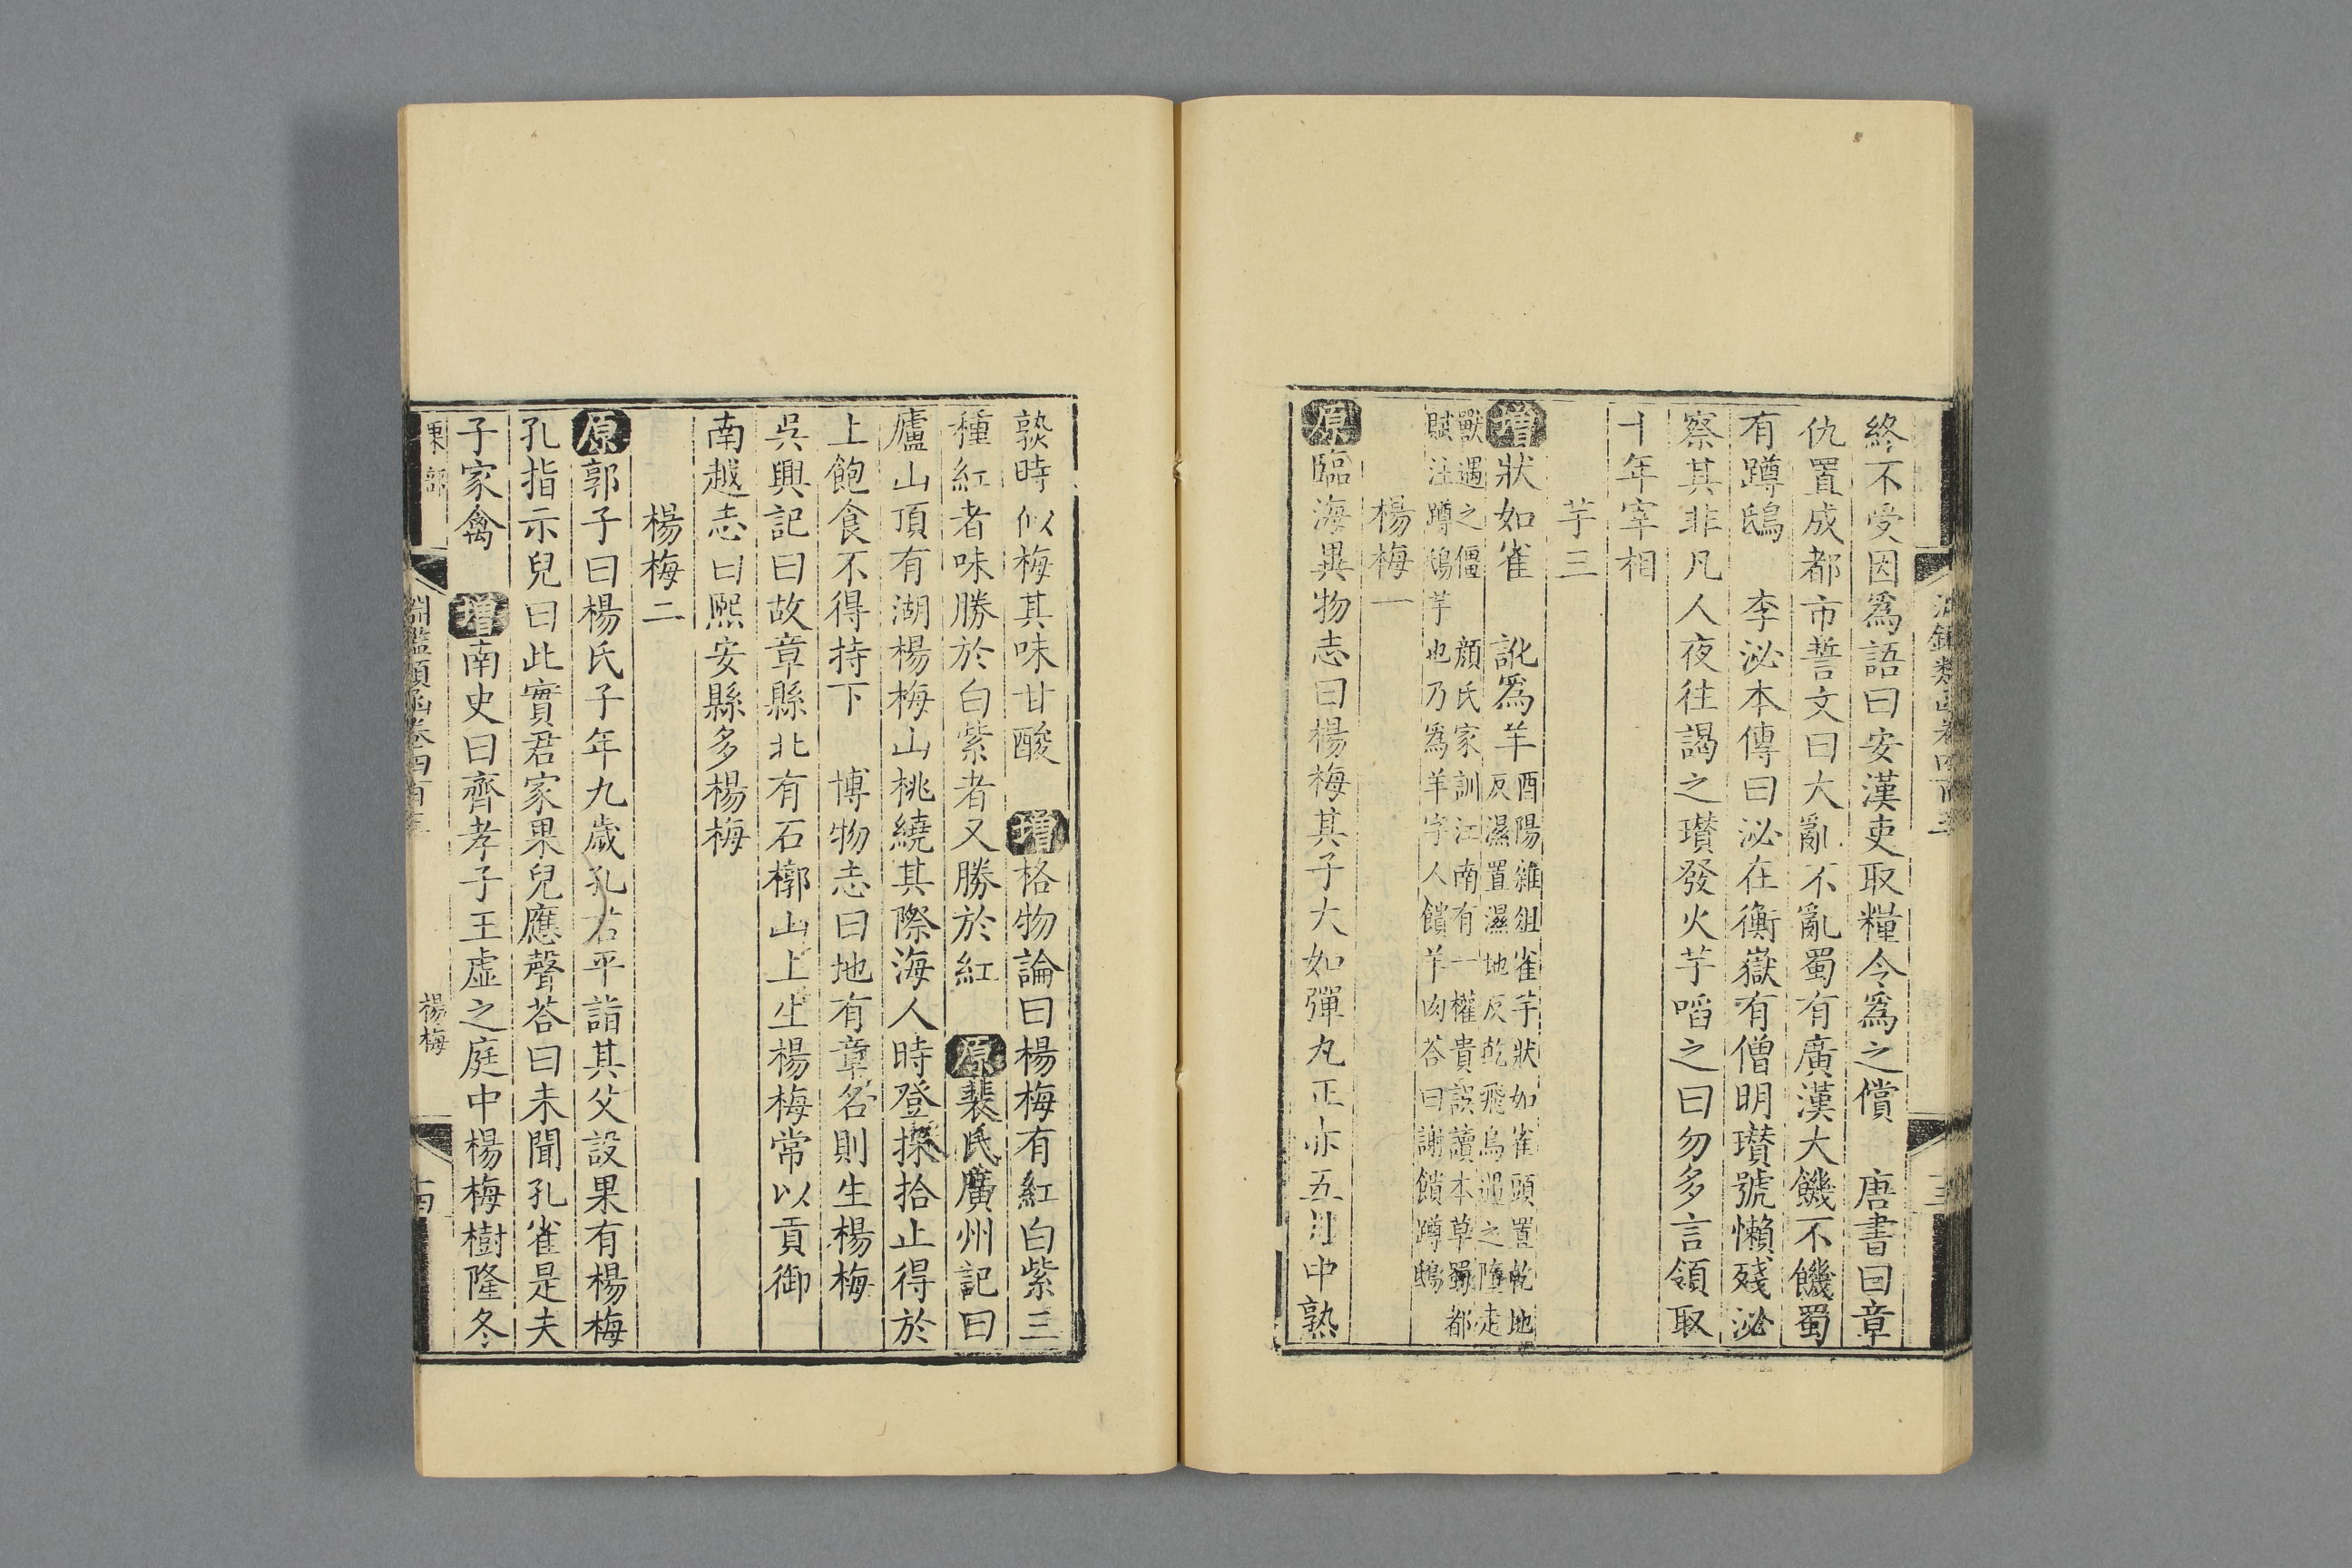 終不受因爲語曰安漢吏取糧令爲之償　唐書曰章
仇置成都市誓文曰大亂不亂蜀有廣漢大饑不饑蜀
有蹲鴟　李泌本傳曰泌在衡嶽有僧明瓚號懶殘泌
察其非凡人夜往謁之瓚發火芋啗之曰勿多言領取
十年宰相
芋三
增狀如雀　訛爲羊
酉陽雜俎雀芋狀如雀頭置乾地
反濕置濕地反乾飛鳥遇之墮走
獸遇之僵　顔氏家訓江南有一權貴誤讀本草蜀都
賦注蹲鴟芋也乃爲羊字人饋羊肉荅曰謝饋蹲鴟
楊梅一
原臨海異物志曰楊梅其子大如彈丸正赤五月中熟
熟時似梅其味甘酸　增格物論曰楊梅有紅白紫三
種紅者味勝於白紫者又勝於紅　原裴氏廣州記曰
廬山頂有湖楊梅山桃繞其際海人時登採拾止得於
上飽食不得持下　博物志曰地有章名則生楊梅
吳興記曰故章縣北有石槨山上生楊梅常以貢御
南越志曰熙安縣多楊梅
楊梅二
原郭子曰楊氏子年九歲孔君平詣其父設果有楊梅
孔指示兒曰此實君家果兒應聲荅曰未聞孔雀是夫
子家禽　增南史曰齊孝子王虛之庭中楊梅樹隆冬
果部
淵鑑類函卷四百三
楊梅